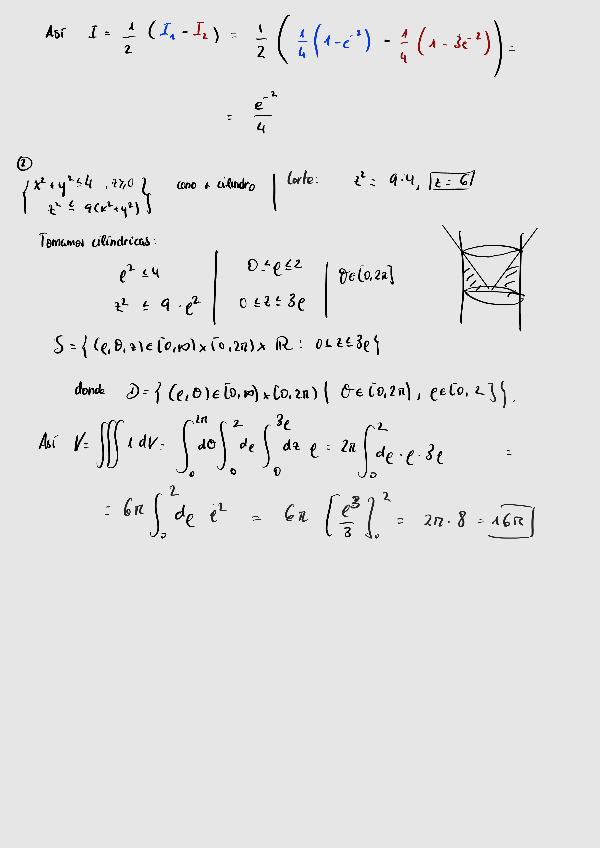 Así I = 1/2 (I₁ - I₂) = 1/2 ( 1/4 (1-e⁻²) - 1/4 (1-3e⁻²) ) =
= e⁻²/4
②
{ x²+y² ≤ 4, z≥0
z² ≤ 9(x²+y²) } cono + cilindro | Corte: z² = 9·4, z = 6
Tomamos cilíndricas:
ρ² ≤ 4 | 0 ≤ ρ ≤ 2 | θ∈[0,2π]
z² ≤ 9·ρ² | 0 ≤ z ≤ 3ρ
S = { (ρ,θ,z)∈[0,∞)×[0,2π)×ℝ : 0≤z≤3ρ }
donde D = { (ρ,θ)∈[0,∞)×[0,2π) | θ∈[0,2π), ρ∈[0,2] }.
Así V = ∭ 1 dV = ∫₀^{2π} dθ ∫₀² dρ ∫₀^{3ρ} dz ρ = 2π ∫₀² dρ·ρ·3ρ =
= 6π ∫₀² dρ ρ² = 6π [ρ³/3]₀² = 2π·8 = 16π